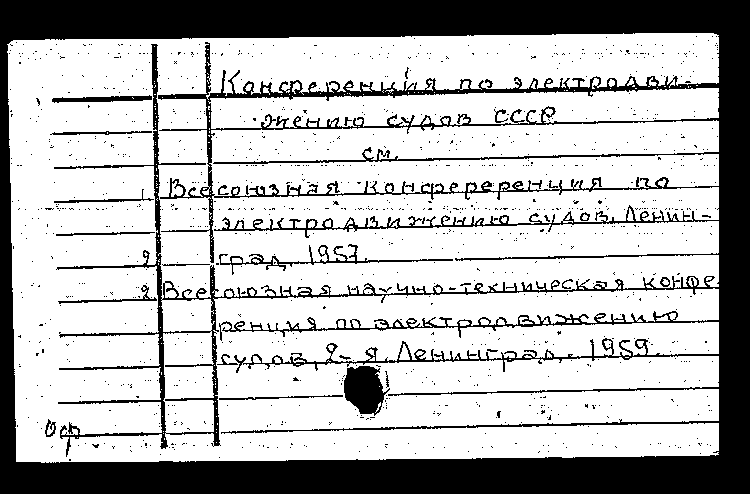 Конференция по электродви-
жению судов СССР
см.
1. Всесоюзная конфереренция по
электродвижению судов. Ленин-
град. 1957.
2. Всесоюзная научно-техническая конфе-
ренция по электродвижению
судов, 2-я. Ленинград. 1959.